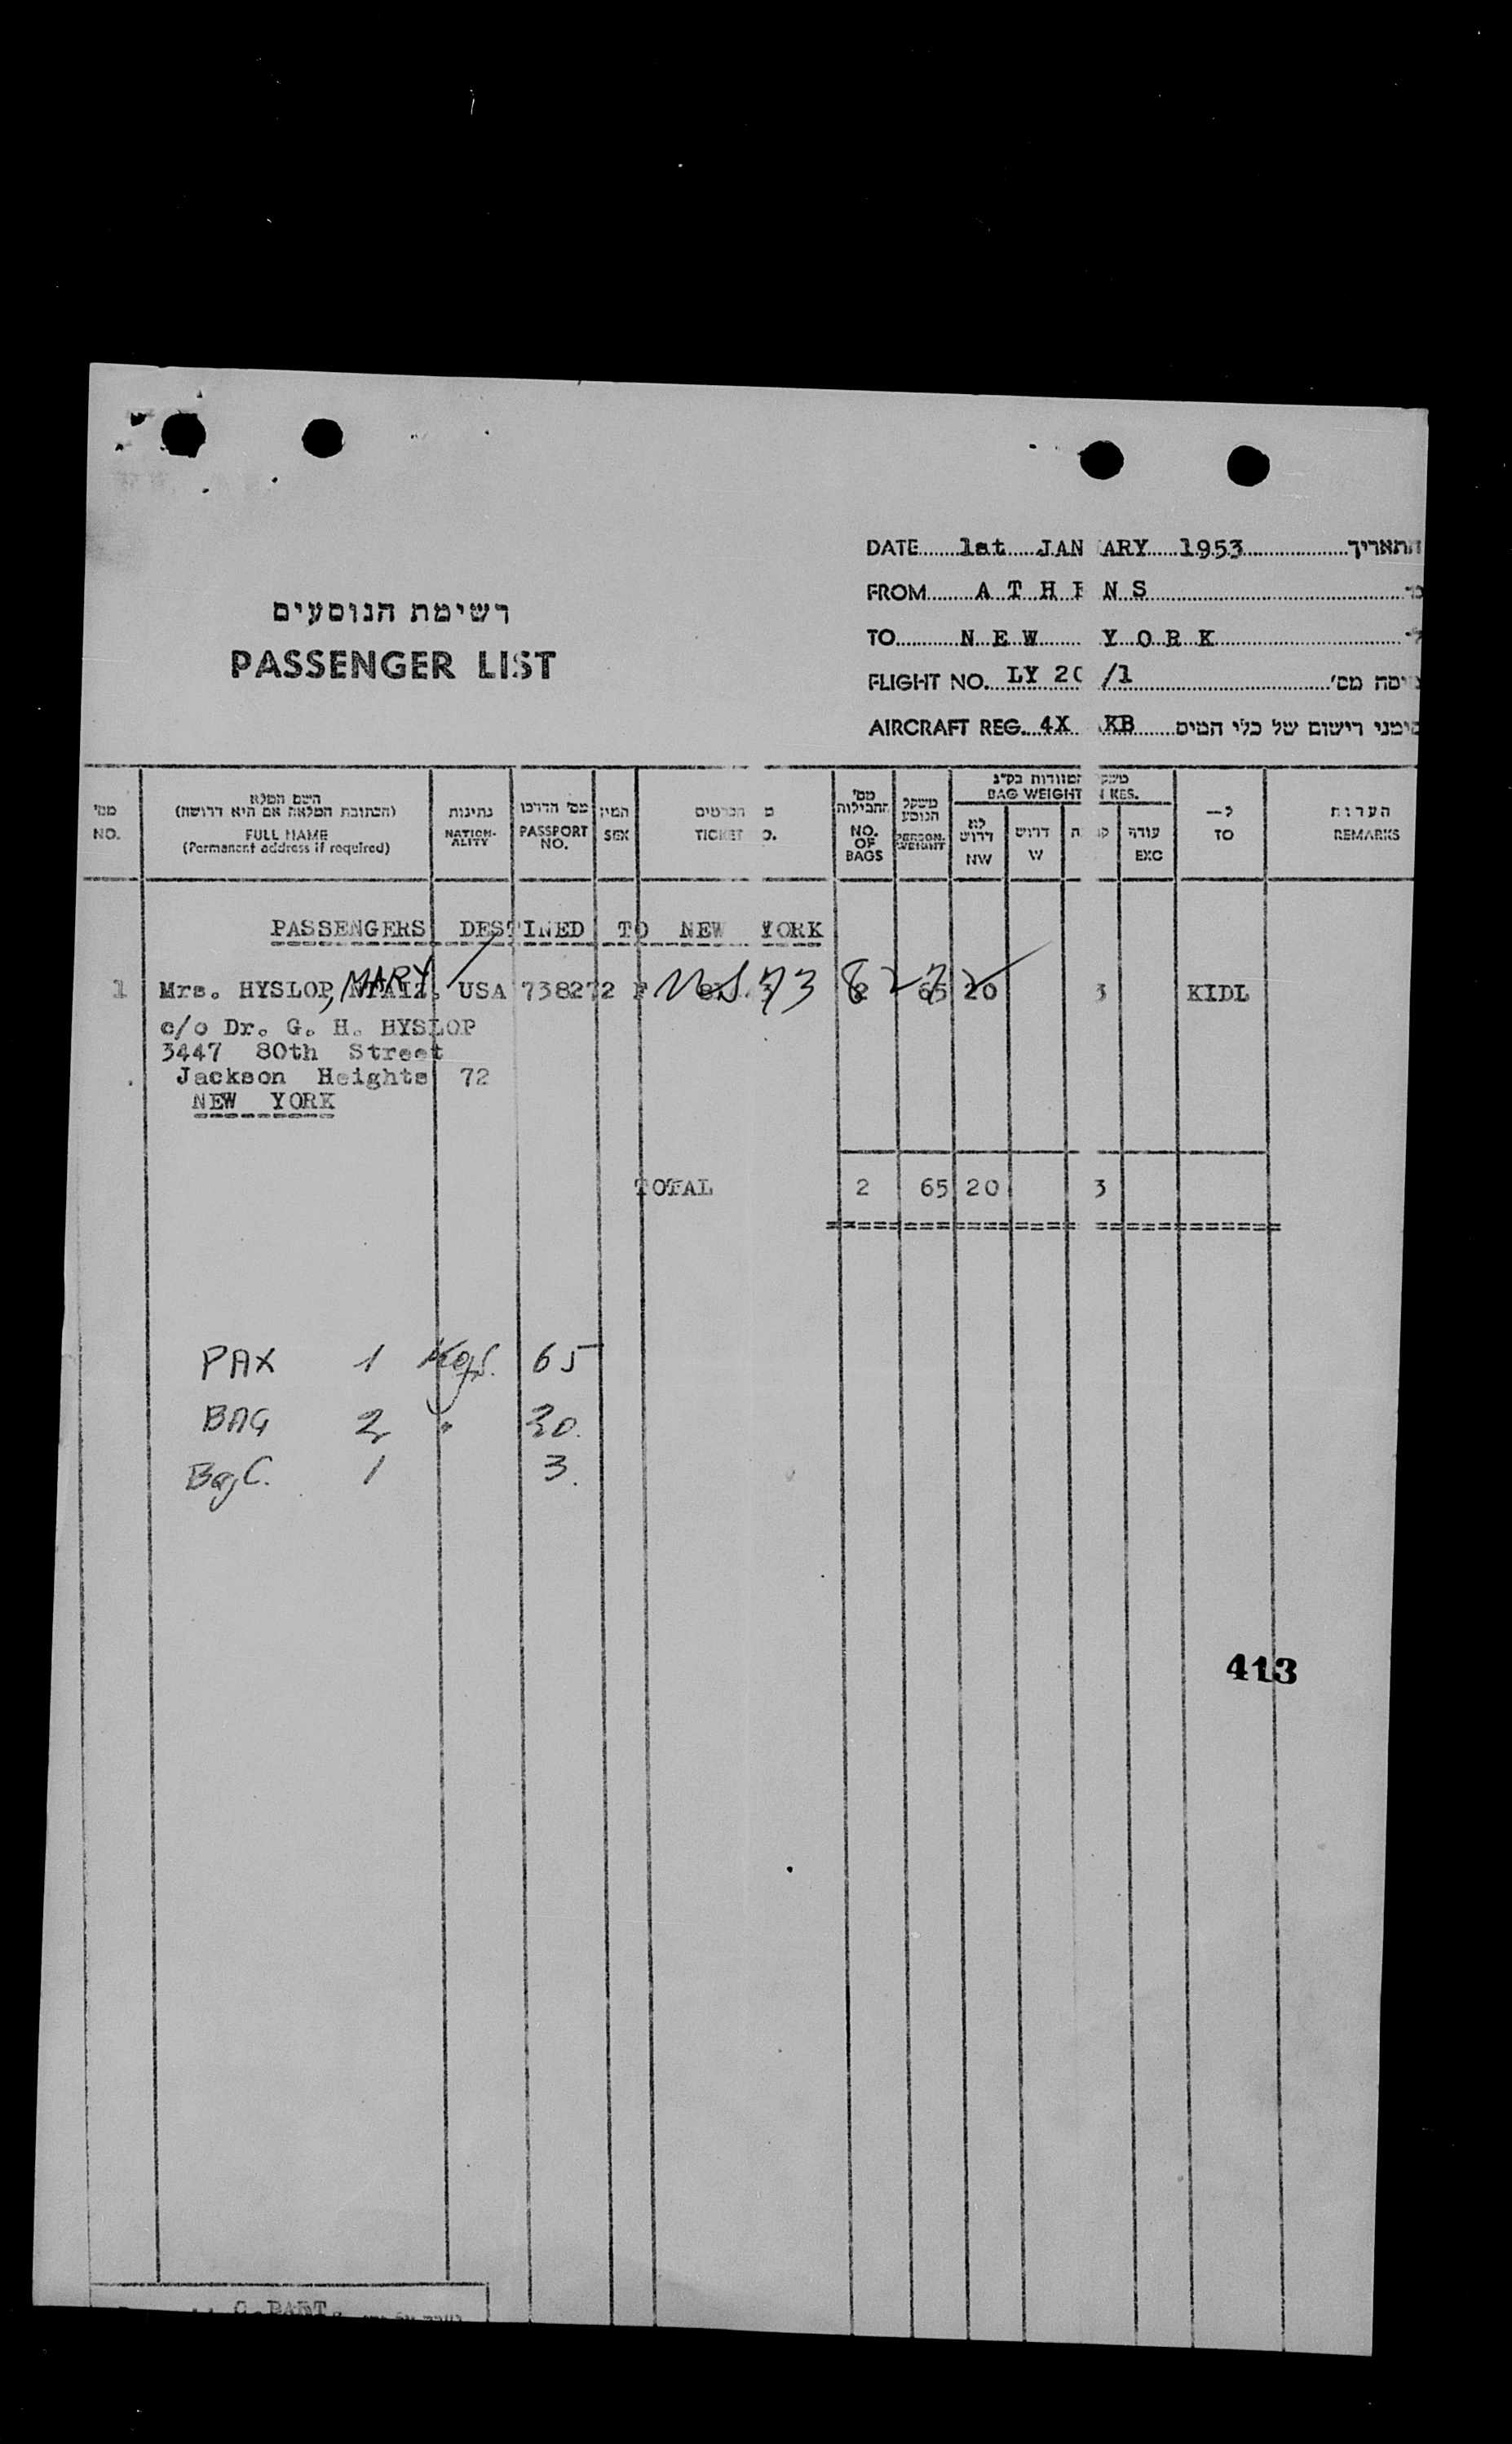 DATE 1st JAN ARY 1953 התאריך
FROM A T H E N S
TO N E W Y O R K
רשימת הנוסעים
PASSENGER LIST
FLIGHT NO. LY 20 /1 יסה מס׳
AIRCRAFT REG. 4X KB סימני רישום של כלי הטיס
מס׳ השם המלא נתינות מס׳ הדרכון המין הכרטיס מס׳ החבילות משקל הנוסע משקל המזוודות בק״ג ל— הערות
(הכתובת המלאה אם היא דרושה) לא דרוש דרוש עודף
NO. FULL NAME NATION-ALITY PASSPORT NO. SEX TICKET O. NO. OF BAGS PERSON. WEIGHT BAG WEIGHT N KES. TO REMARKS
(Permanent address if required) NW W EXC
PASSENGERS DESTINED TO NEW YORK
1 Mrs. HYSLOP, MARY USA 738272 F 2 65 20 3 KIDL
c/o Dr. G. H. HYSLOP
3447 80th Street
Jackson Heights 72
NEW YORK
TOTAL 2 65 20 3
PAX 1 Kgs. 65
BAG 2 " 20.
Bag C. 1 3.
413